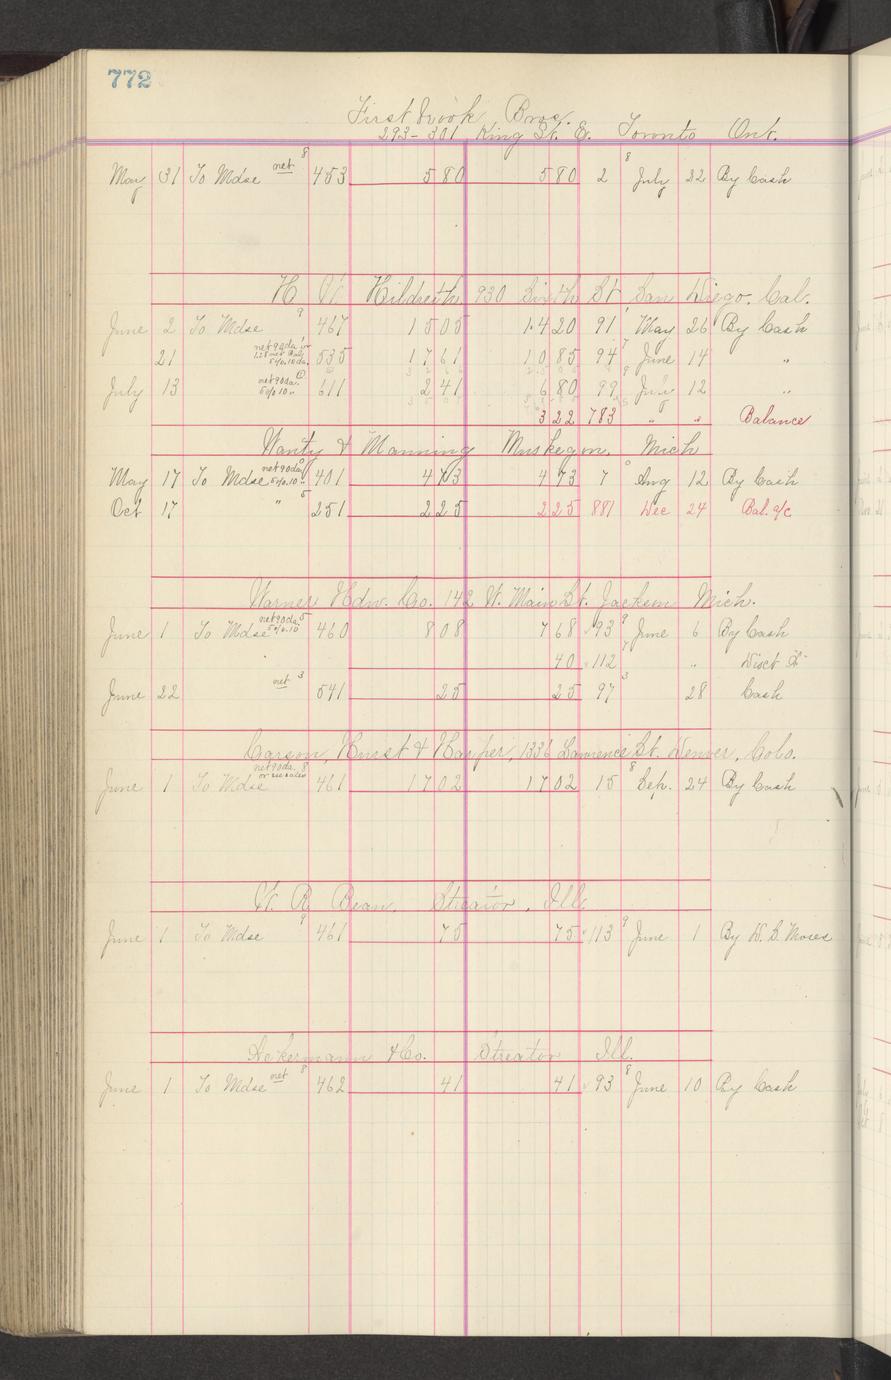 772
Firstbrook Bros.
293-301 King St. E. Toronto Ont.
8 8
May 31 To Mdse net 453 580 580 2 July 22 By Cash
H Hildreth 930 Sixth St San Diego. Cal.
June 2 To Mdse 9 467 1505 1420 91 May 26 By Cash
21 net 90 da or 535 1761 1085 94 7 June 14 "
5% 10 da
July 13 net 90 da. 611 241 680 99 9 July 12 "
5% 10 "
322 783 " " Balance
Wanty & Manning Muskegon. Mich
May 17 To Mdse net 90 da 5% 10 " 401 473 473 7 Aug 12 By Cash
Oct 17 " 5 251 225 225 881 Dec 24 Bal. a/c
Warner Hdw. Co. 142 W. Main St. Jackson Mich.
June 1 To Mdse net 90 da. 5% 10 5 460 808 768 93 9 June 6 By Cash
40 112 7 " Disct
June 22 net 3 541 25 25 97 3 28 Cash
Carson, Hurst & Harper, 1336 Lawrence St. Denver, Colo.
June 1 To Mdse net 90 da. 8 461 1702 1702 15 8 Sep. 24 By Cash
R Bean. Streator, Ill.
June 1 To Mdse 9 461 75 75 113 9 June 1 By W. B. Moses
Ackermann & Co. Streator Ill.
June 1 To Mdse net 8 462 41 41 93 8 June 10 By Cash